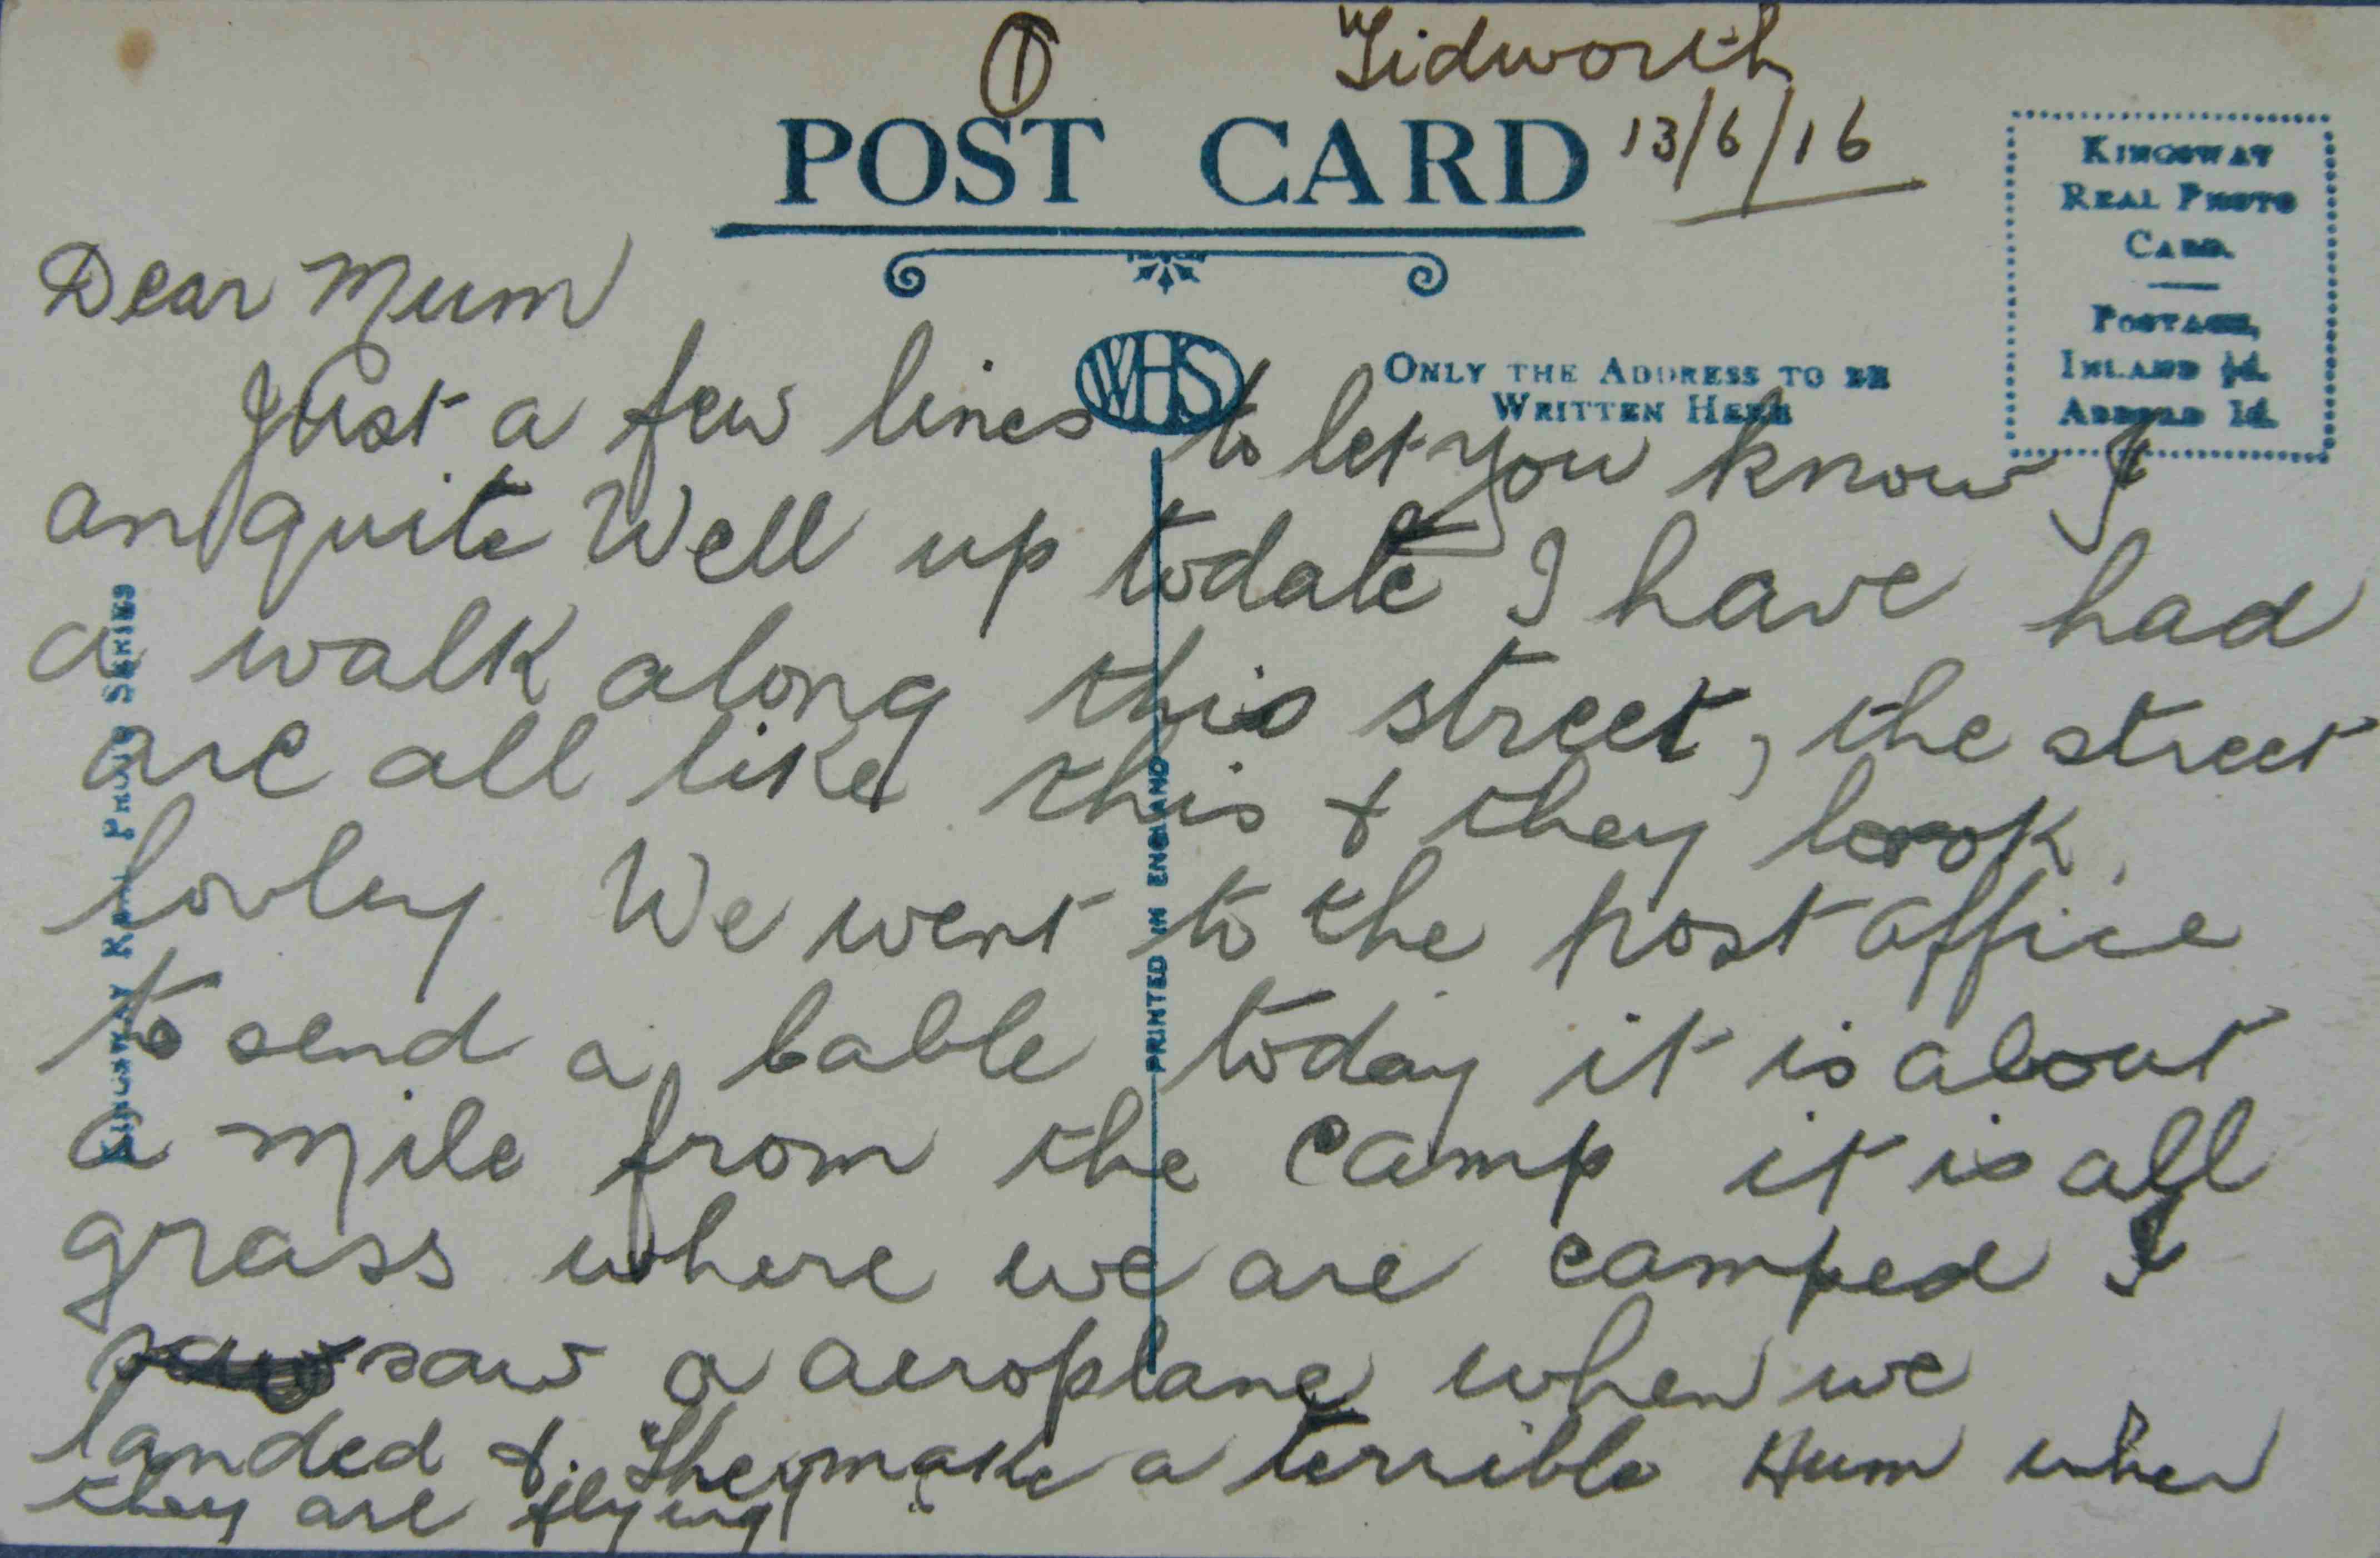 ①
Tidworth
POST CARD
13/6/16
KINGSWAY
REAL PHOTO
CARD.
POSTAGE,
INLAND ½d.
ABROAD 1d.
WHS
ONLY THE ADDRESS TO BE
WRITTEN HERE
Dear Mum
Just a few lines to let you know I
am quite Well up todate I have had
a walk along this street, the street
are all like this & they look
lovley We went to the post office
to send a cable today it is about
a mile from the Camp it is all
grass where we are camped I
saw saw a aeroplane when we
landed & They make a terrible Hum when
they are flying
KINGSWAY REAL PHOTO SERIES
PRINTED IN ENGLAND